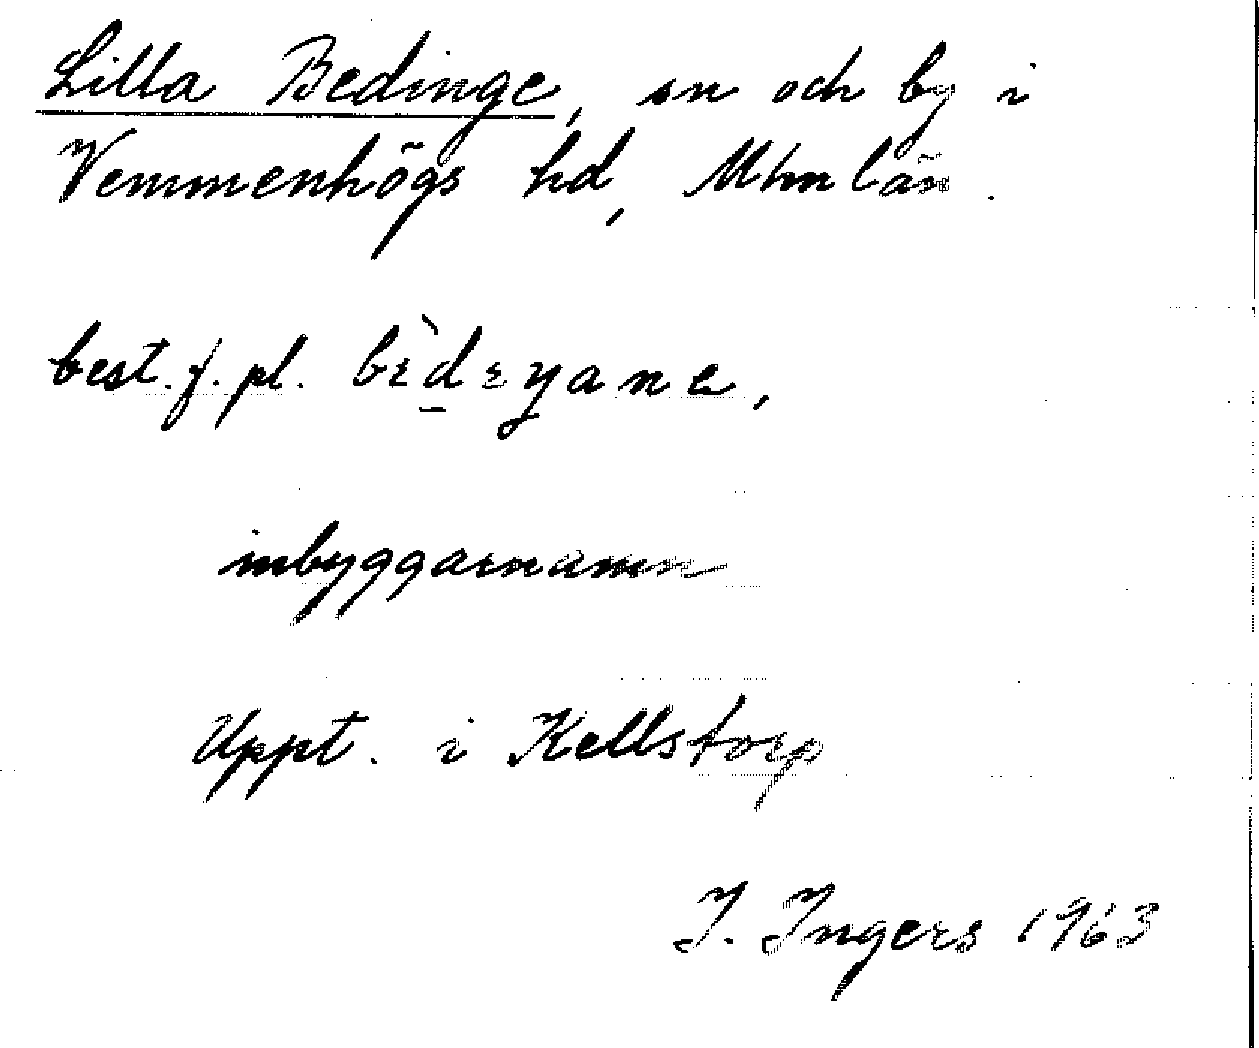 Lilla Bedinge, sn och by i
Vemmenhögs hd, Mhm län.
best. f. pl.
inbyggarnamn
Uppt. i Kellstorp
I. Ingers 1963